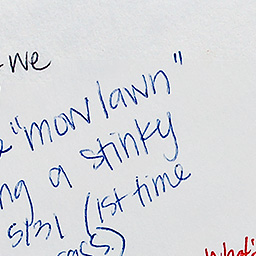 we
"mow lawn"
a stinky
5/31 (1st time
What's